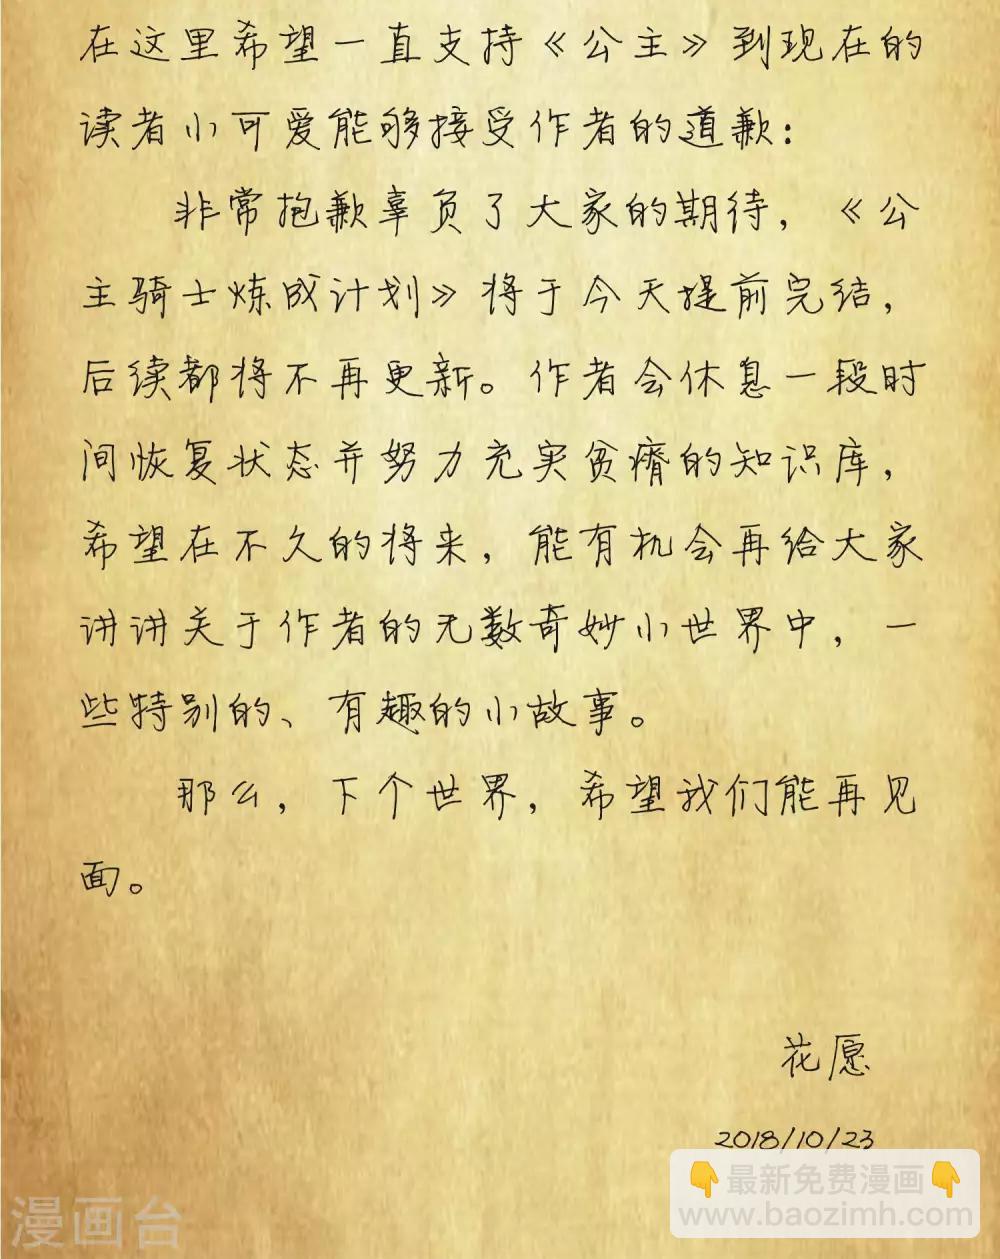 在这里希望一直支持《公主》到现在的
读者小可爱能够接受作者的道歉：
非常抱歉辜负了大家的期待，《公
主骑士炼成计划》将于今天提前完结，
后续都将不再更新。作者会休息一段时
间恢复状态并努力充实贫瘠的知识库，
希望在不久的将来，能有机会再给大家
讲讲关于作者的无数奇妙小世界中，一
些特别的、有趣的小故事。
那么，下个世界，希望我们能再见
面。
花愿
2018/10/23
👇最新免费漫画👇
www.baozimh.com
漫画台